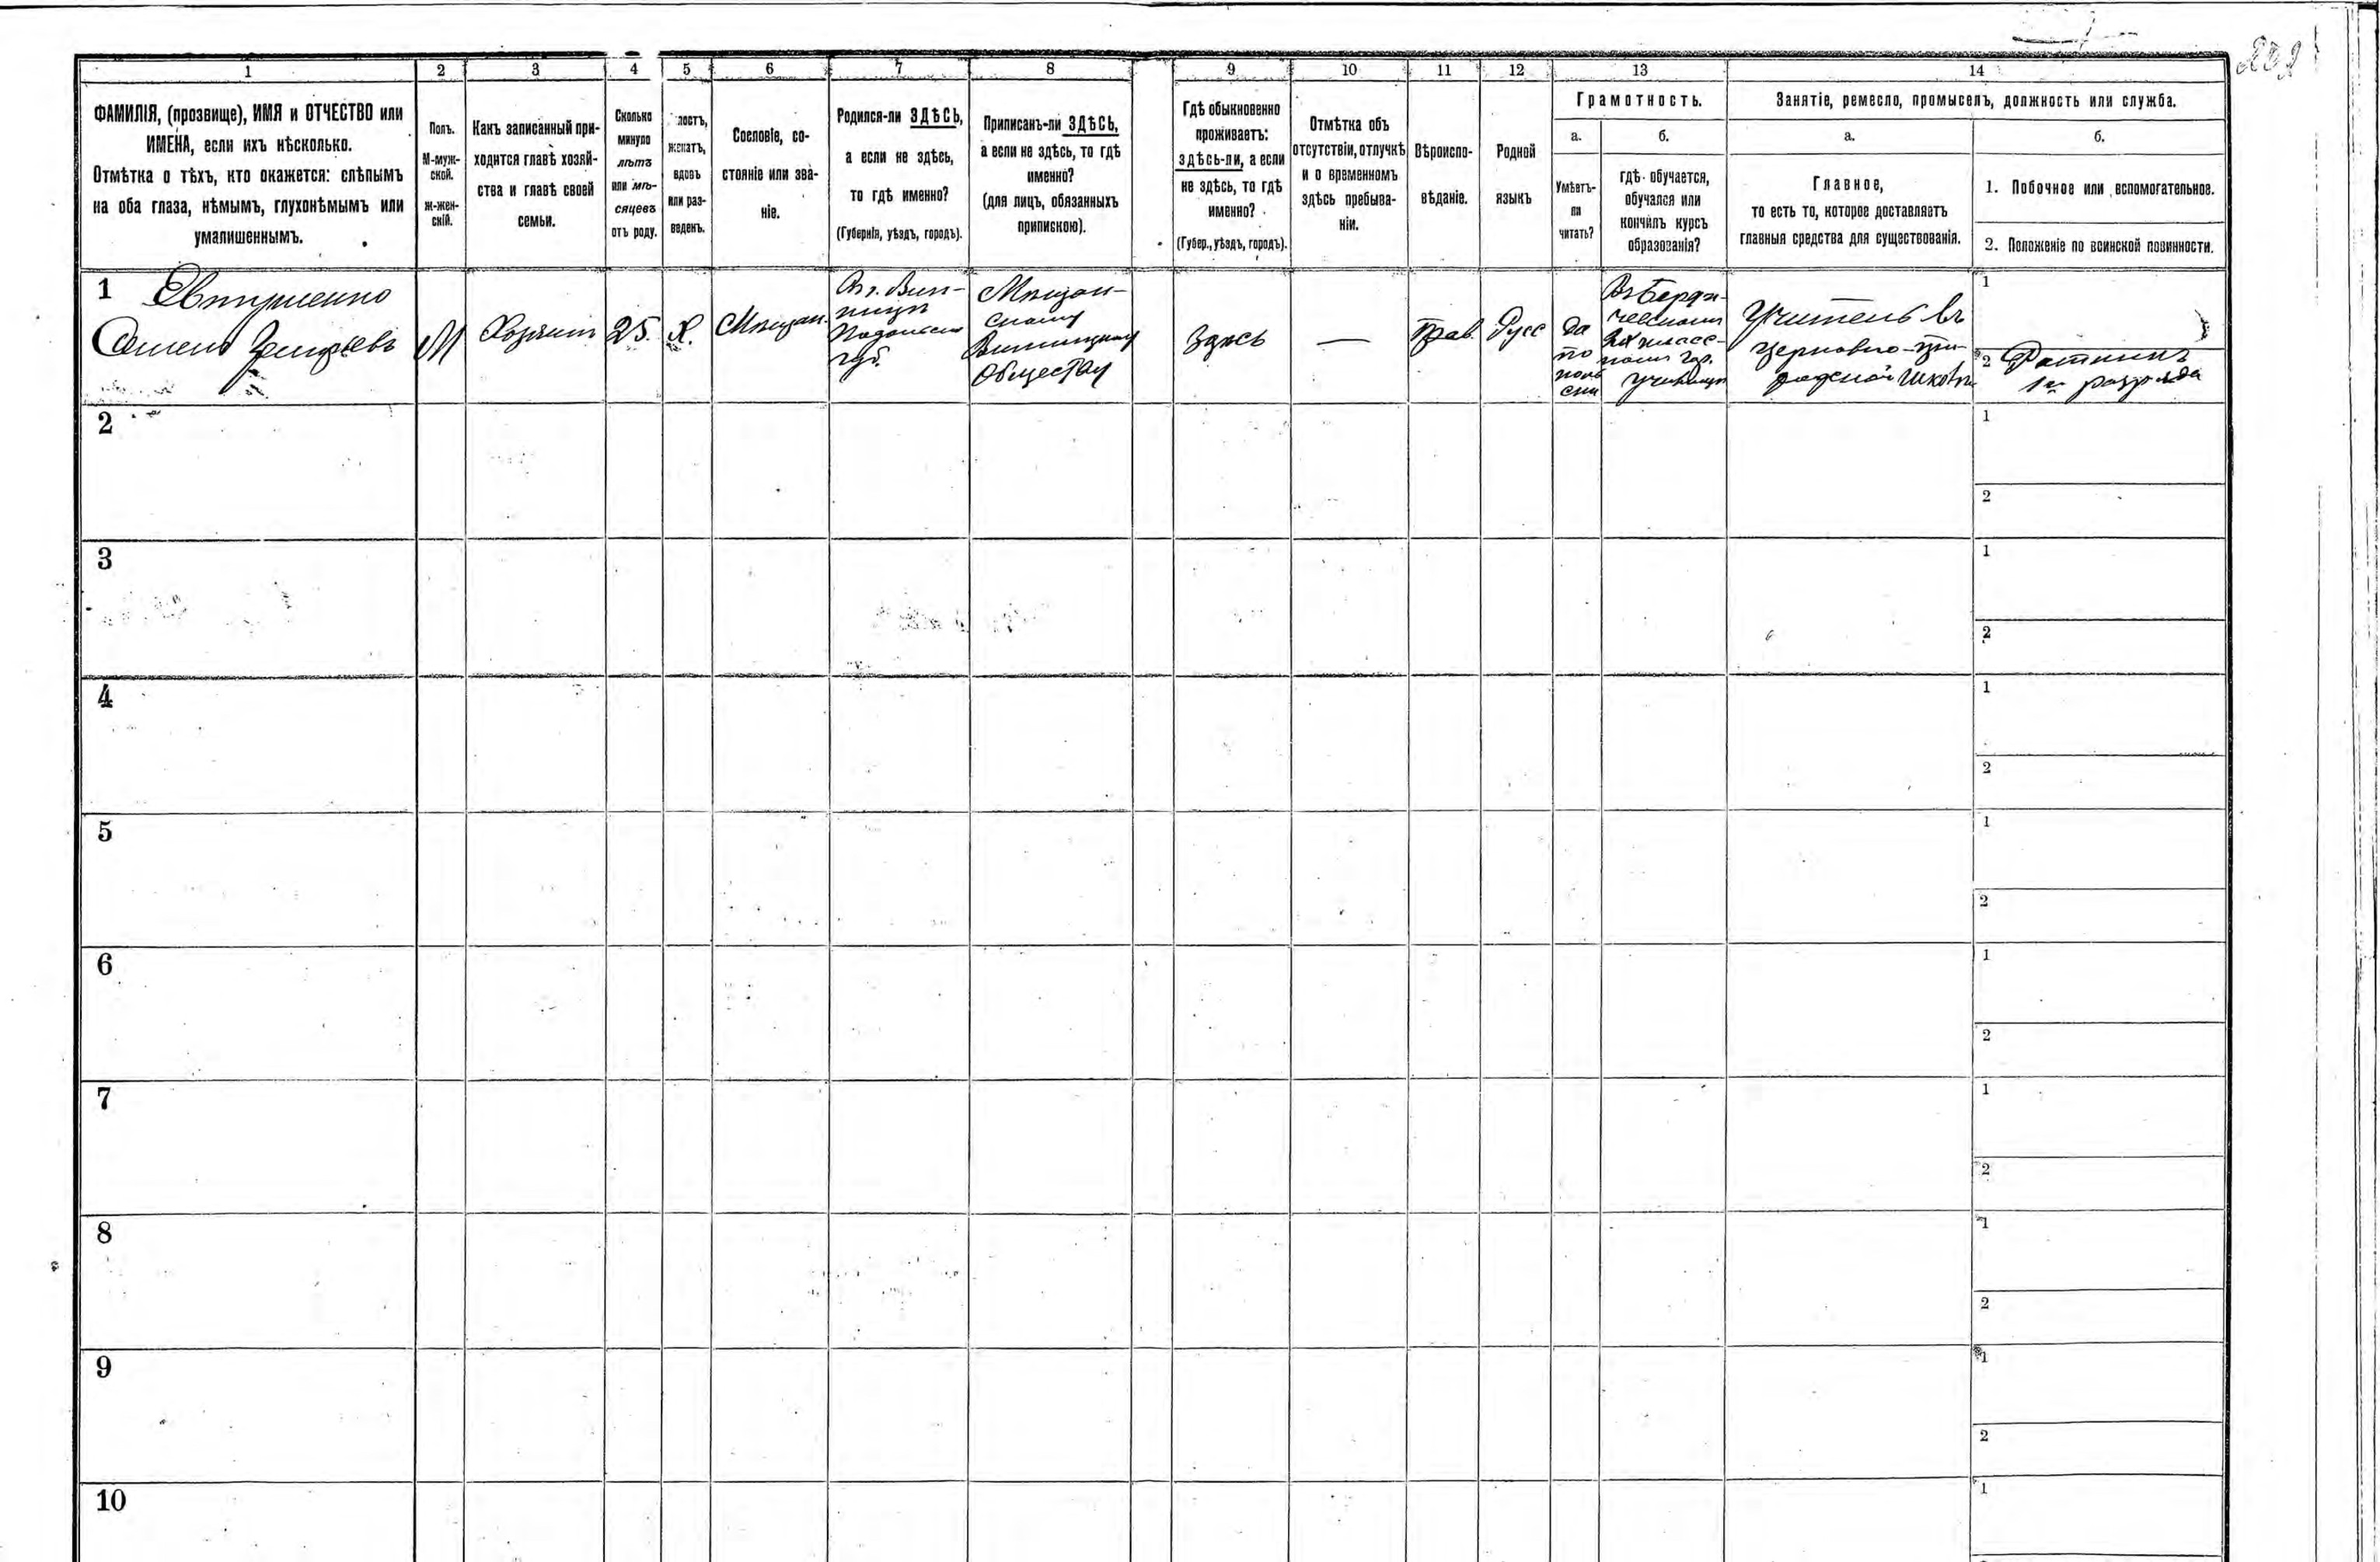 222
1
2
3
4
5
6
7
8
9
10
11
12
13
14
ФАМИЛІЯ, (прозвище), ИМЯ и ОТЧЕСТВО или
ИМЕНА, если ихъ нѣсколько.
Отмѣтка о тѣхъ, кто окажется: слѣпымъ
на оба глаза, нѣмымъ, глухонѣмымъ или
умалишеннымъ.
Полъ.
М-муж-
ской.
ж-жен-
скій.
Какъ записанный при-
ходится главѣ хозяй-
ства и главѣ своей
семьи.
Сколько
минуло
лѣтъ
или мѣ-
сяцевъ
отъ роду.
лостъ,
женатъ,
вдовъ
или раз-
веденъ.
Сословіе, со-
стояніе или зва-
ніе.
Родился-ли ЗДѢСЬ,
а если не здѣсь,
то гдѣ именно?
(Губернія, уѣздъ, городъ).
Приписанъ-ли ЗДѢСЬ,
а если не здѣсь, то гдѣ
именно?
(для лицъ, обязанныхъ
припискою).
Гдѣ обыкновенно
проживаетъ:
здѣсь-ли, а если
не здѣсь, то гдѣ
именно?
(Губер., уѣздъ, городъ).
Отмѣтка объ
отсутствіи, отлучкѣ
и о временномъ
здѣсь пребыва-
ніи.
Вѣроиспо-
вѣданіе.
Родной
языкъ
Грамотность.
а.
Умѣетъ-
ли
читать?
б.
гдѣ обучается,
обучался или
кончилъ курсъ
образованія?
Занятіе, ремесло, промыселъ, должность или служба.
а.
Главное,
то есть то, которое доставляетъ
главныя средства для существованія.
б.
1. Побочное или вспомогательное.
2. Положеніе по воинской повинности.
1
Евтушенко
Семенъ
М
Хозяинъ
25.
Х.
Мѣщан.
Въ г. Вин-
ницѣ
Подольск.
губ.
Мѣщан-
скому
Винницкому
Обществу
Здѣсь
—
Прав.
Русс
Да
по
поль
ски
Въ Берди-
чевскомъ
2хъ класс-
номъ гор.
училищѣ
Учитель въ
церковно-при-
ходской школѣ
1
2 Ратникъ
1го разряда
2
1
2
3
1
2
4
1
2
5
1
2
6
1
2
7
1
2
8
1
2
9
1
2
10
1